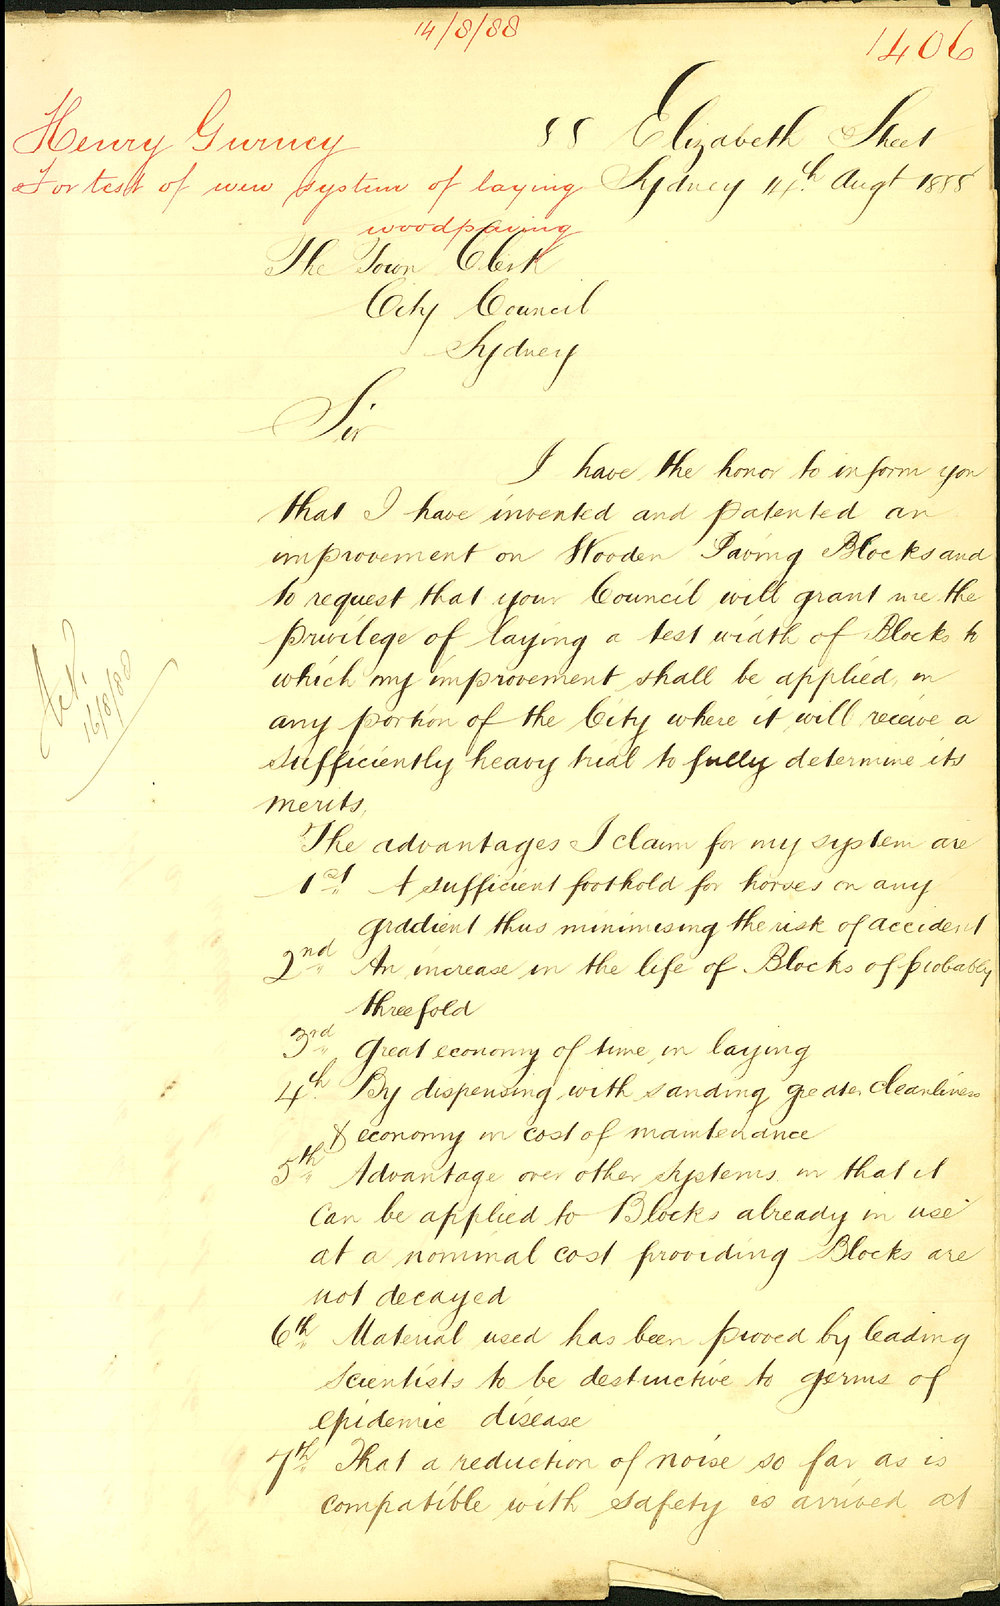 14/8/88
1406
Henry Gurney
For test of new system of laying
woodpaving
88 Elizabeth Street
Sydney 14th Augt 1888
The Town Clerk
City Council
Sydney
Sir
I have the honor to inform you
that I have invented and patented an
improvement on Wooden Paving Blocks and
to request that your Council will grant me the
privilege of laying a test width of Blocks to
which my improvement shall be applied, in
any portion of the City where it will receive a
sufficiently heavy trial to fully determine its
merits,
16/8/88
The advantages I claim for my system are
1st A sufficient foothold for horses on any
gradient thus minimising the risk of accident
2nd An increase in the life of Blocks of probably
threefold
3rd Great economy of time in laying
4th By dispensing with sanding greater cleanliness
& economy in cost of maintenance
5th Advantage over other systems in that it
can be applied to Blocks already in use
at a nominal cost providing Blocks are
not decayed
6th Material used has been proved by leading
scientists to be destructive to germs of
epidemic disease
7th That a reduction of noise so far as is
compatible with safety is arrived at